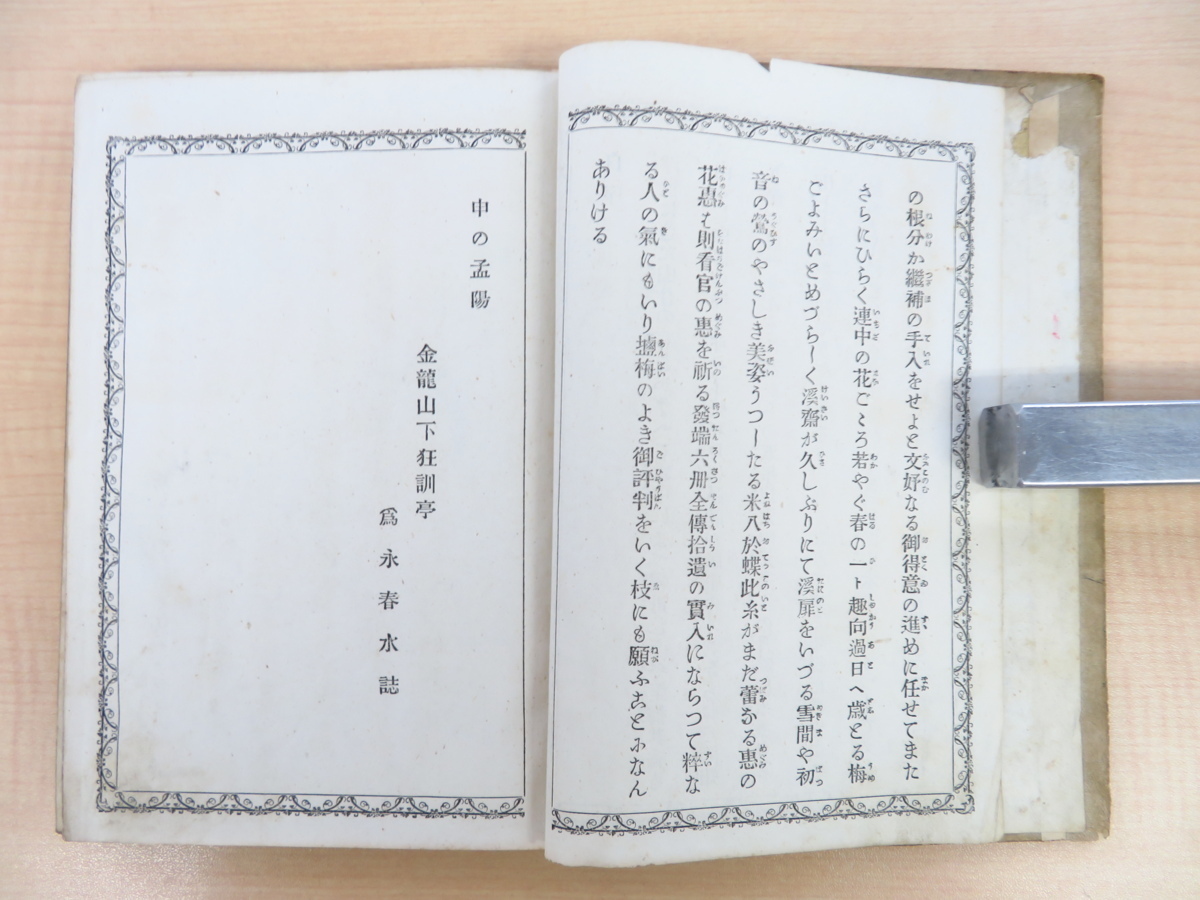 の根分か繼補の手入をせよと文好なる御得意の進めに任せてまた
さらにひらく連中の花ごゝろ若やぐ春の一ト趣向過日へ歳とる梅
ごよみいとめづらしく溪齋が久しぶりにて溪扉をいづる雪間や初
音の鶯のやさしき美姿うつしたる米八於蝶此糸がまだ蕾なる惠の
花惠は則看官の惠を祈る發端六册全傳拾遺の實入にならつて粹な
る人の氣にもいり塩梅のよき御評判をいく枝にも願ふことになん
ありける
申の孟陽
金龍山下狂訓亭
爲永春水誌